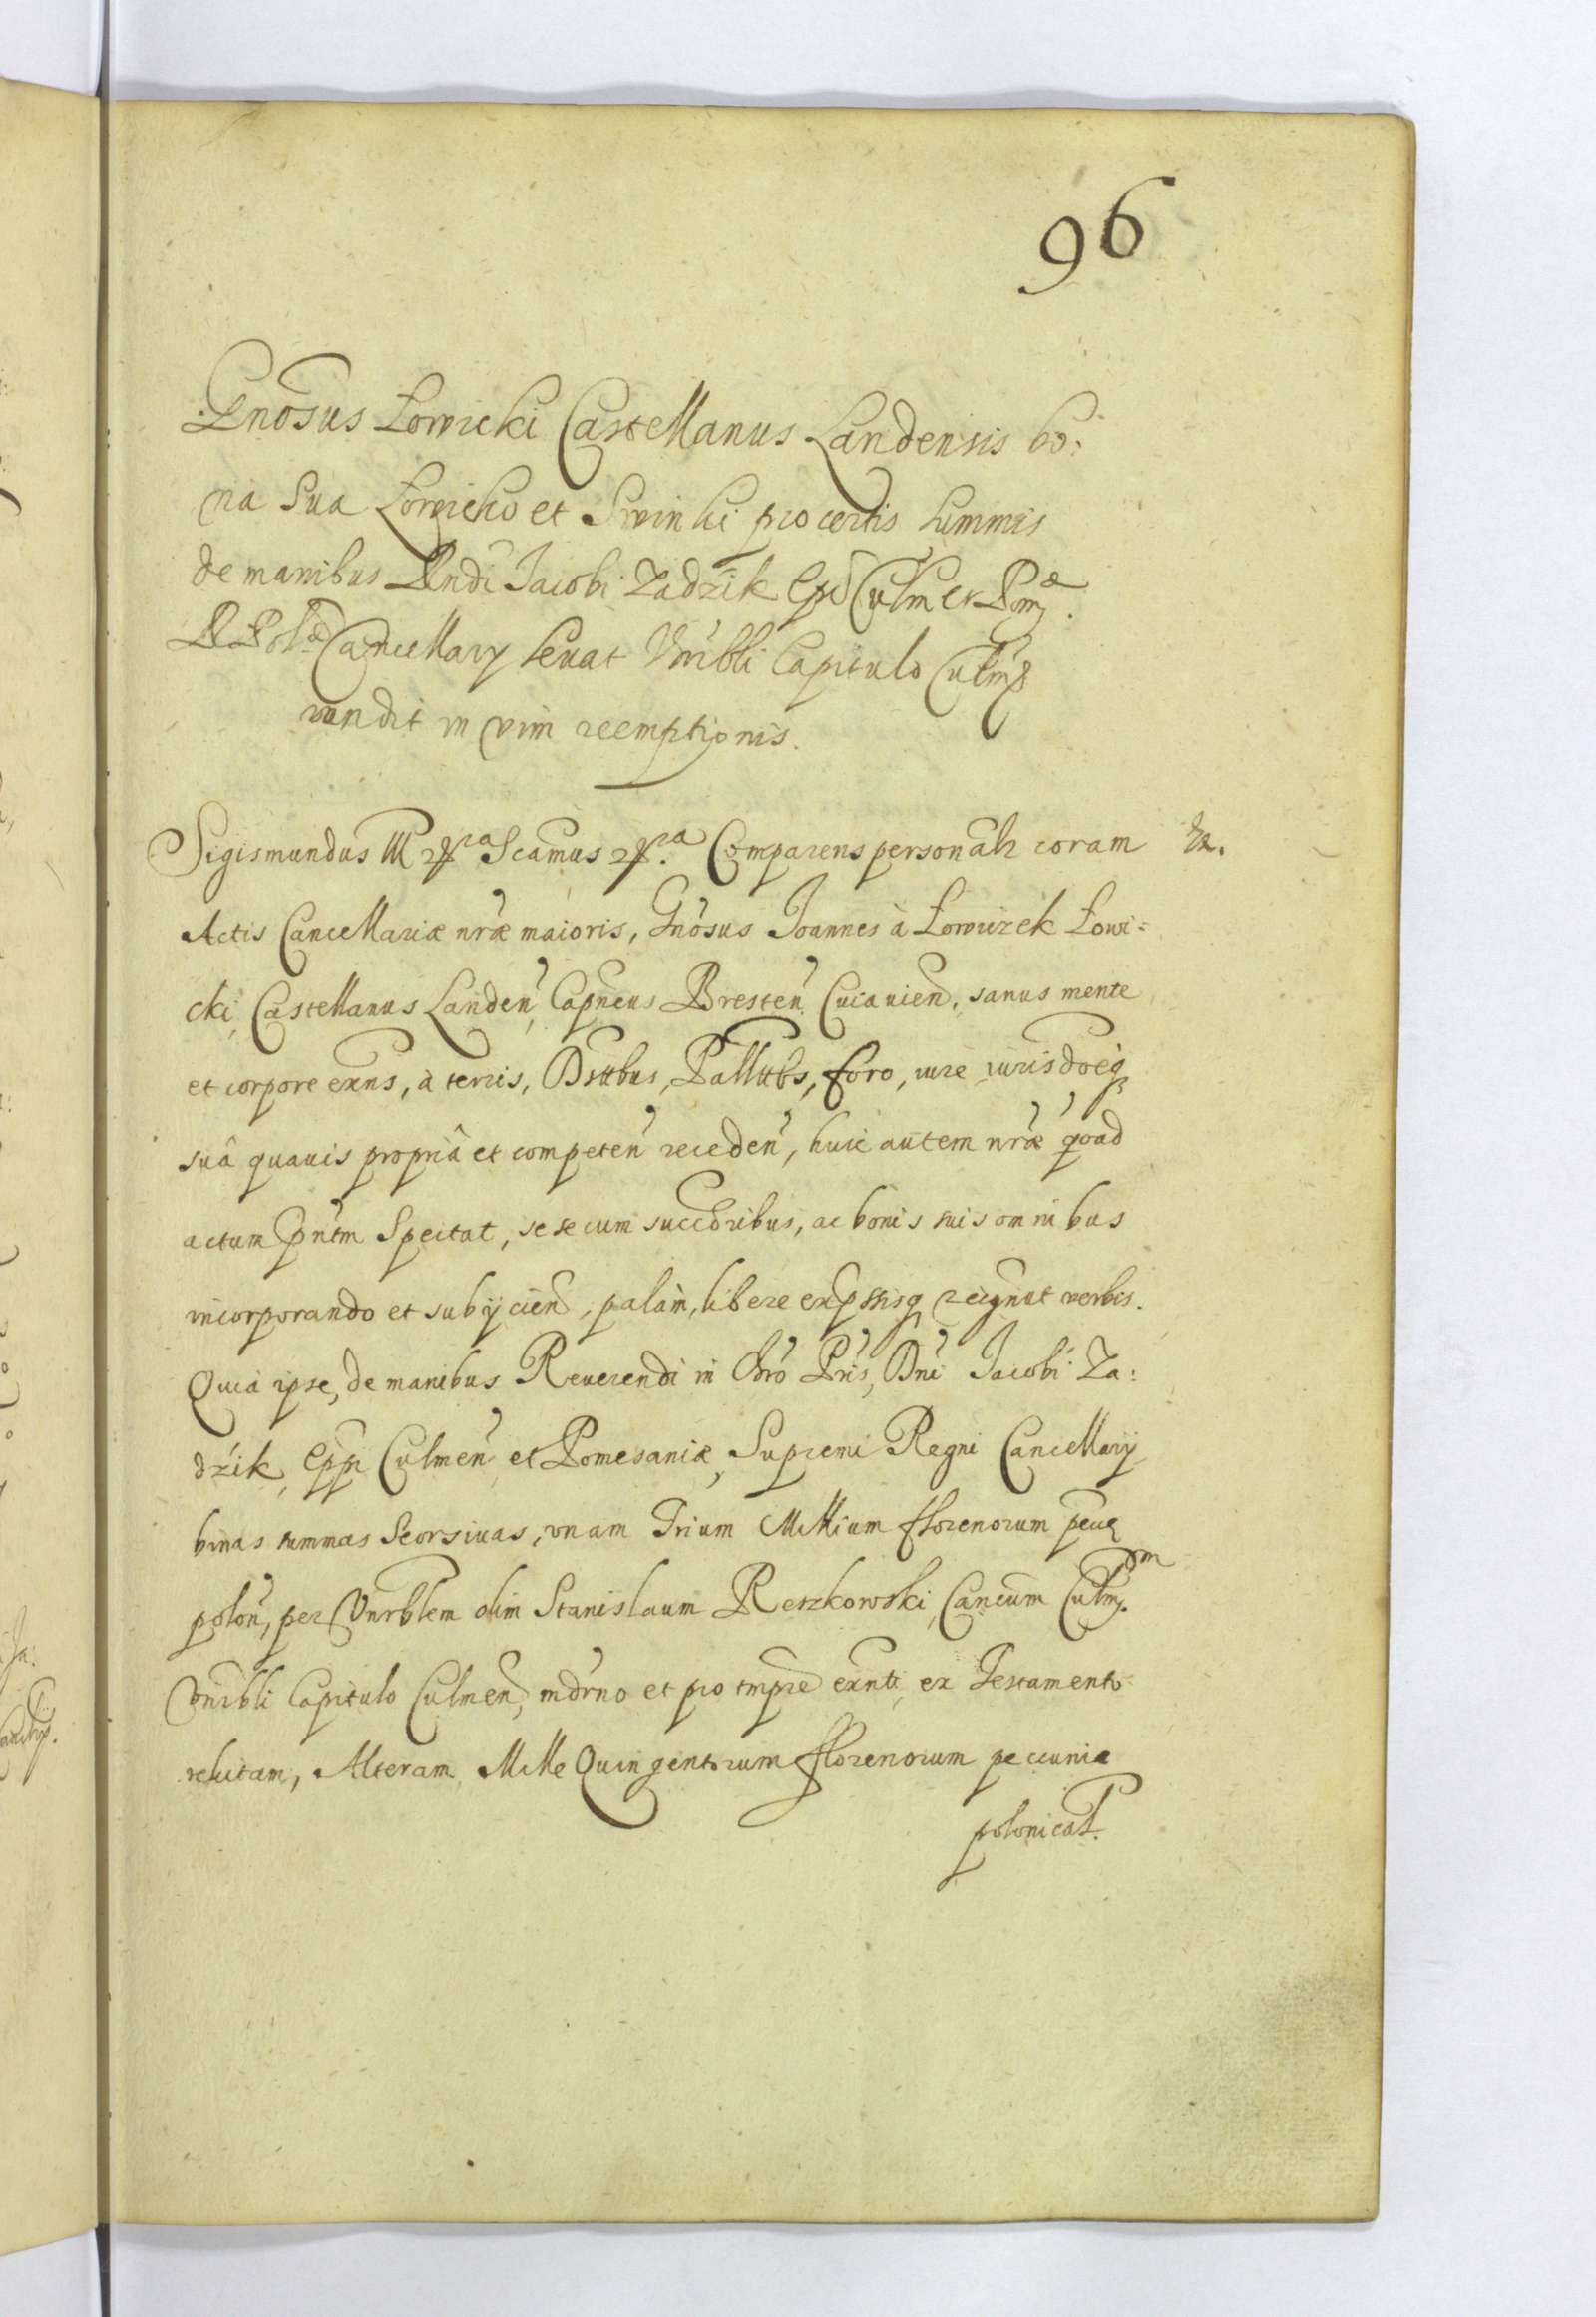 96
Gnosus Łowicki Castellanus Landensis bo:
na sua Łowicko et Swinki pro certis summis
de manibus Rndi Jacobi Zadzik Epi Culm et Pomæ.
R Polæ Cancellarÿ levat Vnrbli Capitulo Culm
vendit in vim reemptionis.
Sigismundus III etca Scamus etca. Comparens personalr coram
Actis Cancellariæ nræ maioris, Gnosus Joannes à Łowiczek Łowi=
cki, Castellanus Landen, Capneus Bresten Cuiauien, sanus mente
et corpore exns, à terris, Dstibus, Pallttbs, foro, iure iurisdoeq
suâ quauis propriâ et competen receden, huic autem nræ quoad
actum pntm Spectat, se se cum succoribus, ac bonis suis omnibus
incorporando et subijcien, palàm, libere expssisq recignut verbis.
Quia ipse, de manibus Reuerendi in Chro Pris, Dni Jacobi Za:
dzik, Eppi Culmen et Pomesaniæ, Supremi Regni Cancellarij
binas summas Seorsiuas, vnam Trium Millium florenorum pecuæ
polon, per Vnrblem olim Stanislaum Retzkowski, Cancum Culm.
Vnrbli Capitulo Culmen, mdrno et pro tmpre exnti, ex Testamento
relictam, Alteram Mille Quingentorum florenorum pecuniæ
polonical.